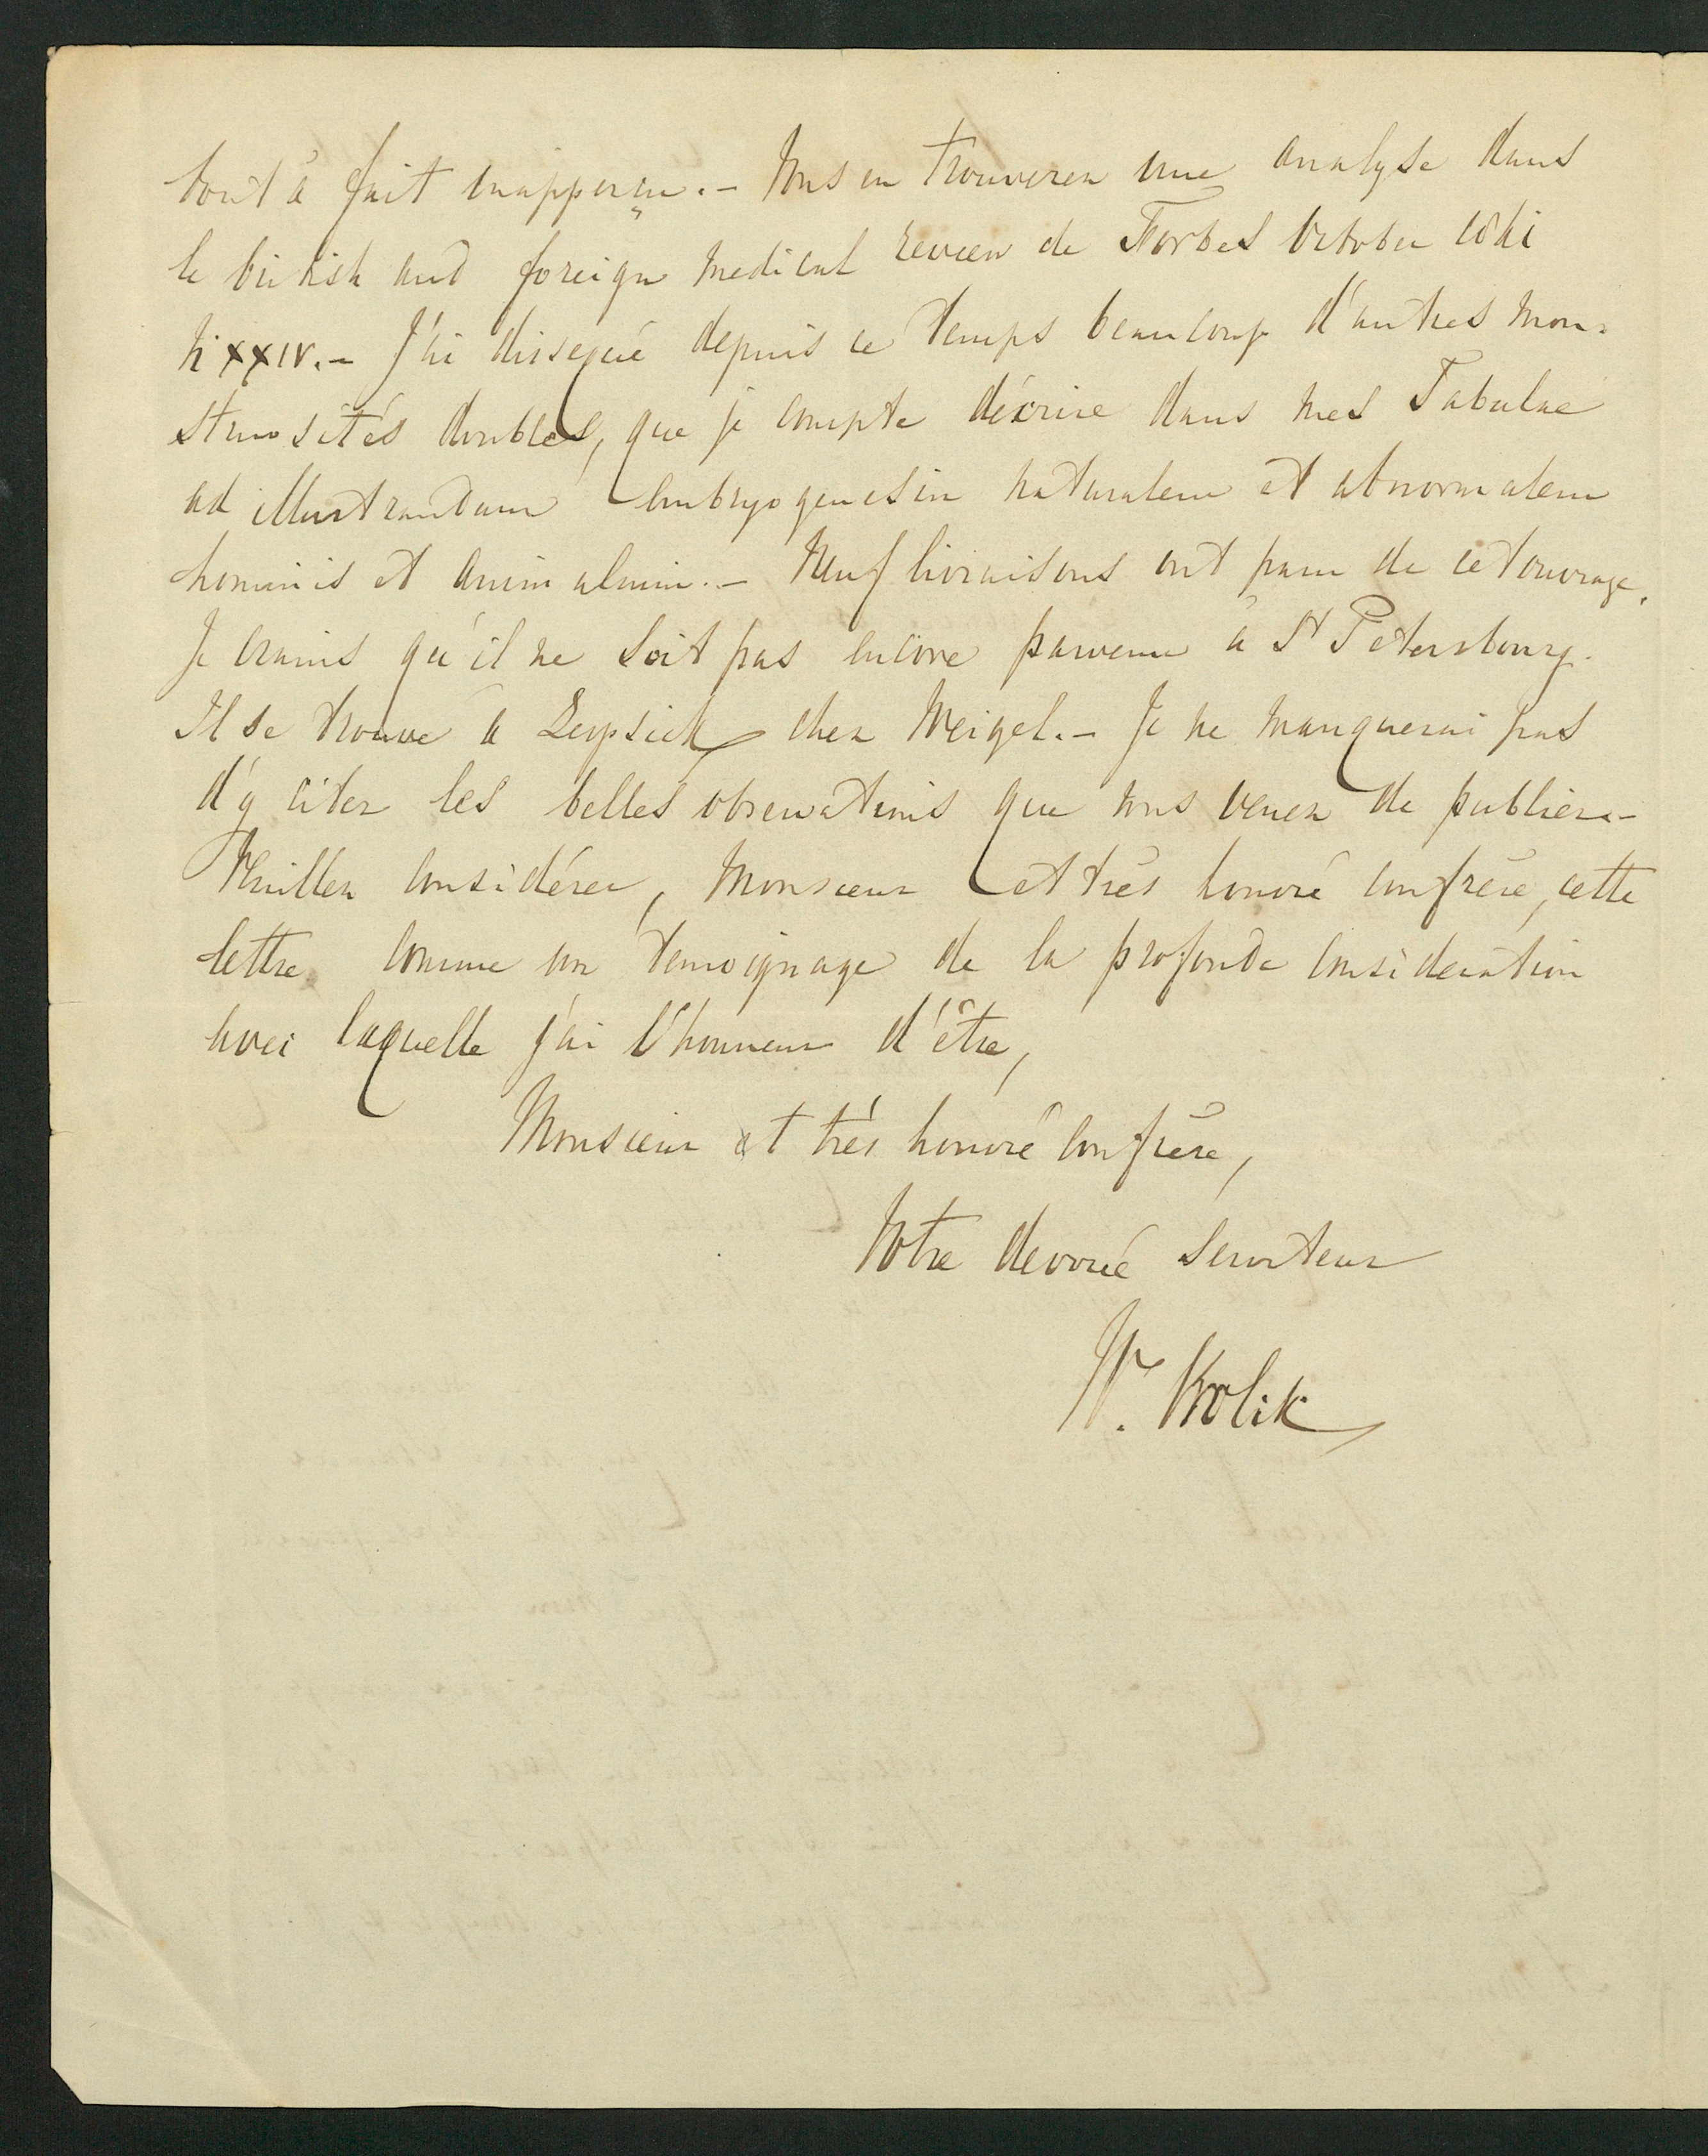 tout à fait inapperçu. - Vous en trouverez une analyse dans
le british and foreign medical review de Forbes October 1841
N XXIV. - J'ai disséqué depuis ce temps beaucoup d'autres mon-
struosités doubles, que je compte décrire dans mes Tabulae
ad illustrandam embryogenesin naturalem et abnormalem
hominis et animalium. - Neuf livraisons ont paru de cet ouvrage.
Je crains qu'il ne soit pas encore parvenu à St Petersbourg.
Il se trouve à Leypsick chez Weigel. - Je ne manquerai pas
d'y citer les belles observations que vous venez de publier. -
Veuillez considérer, Monsieur et très honoré confrère, cette
lettre comme un temoignage de la profonde consideration
avec laquelle j'ai l'honneur d'être,
Monsieur et très honoré confrère,
Votre devoué serviteur
W. Vrolik